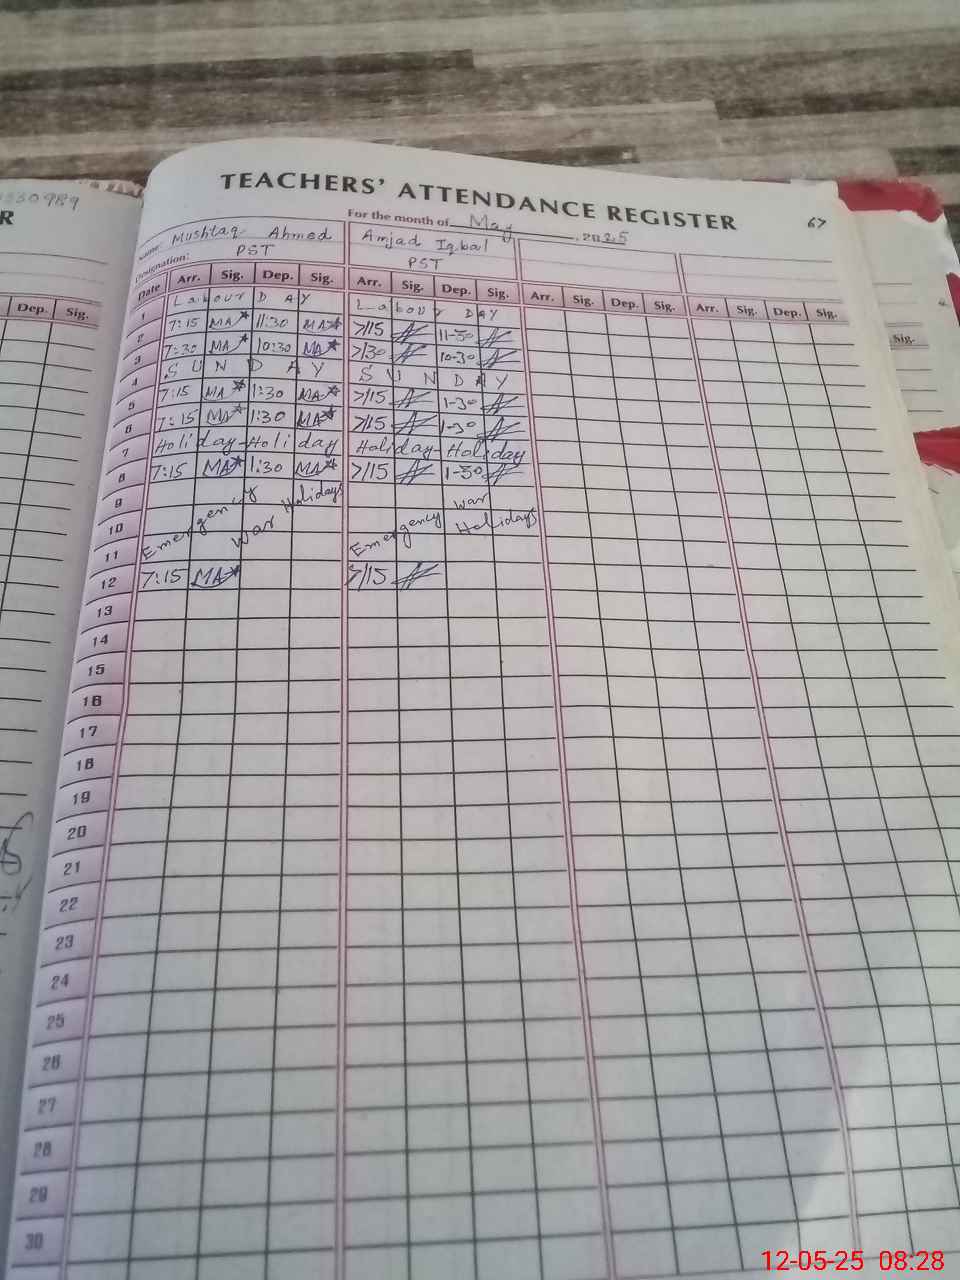 330989
R
TEACHERS' ATTENDANCE REGISTER
67
For the month of May, 2025
Name: Mushtaq Ahmed Amjad Iqbal
Designation: PST PST
Dep. Sig. Date Arr. Sig. Dep. Sig. Arr. Sig. Dep. Sig. Arr. Sig. Dep. Sig. Arr. Sig. Dep. Sig. Sig.
1 Labour DAY Labour DAY
2 7:15 MA 11:30 MA 7/15 11-30
3 7:30 MA 10:30 MA 7/30 10-30
4 SUNDAY SUNDAY
5 7:15 MA 1:30 MA 7/15 1-30
6 7:15 MA 1:30 MA 7/15 1-30
7 Holiday-Holiday Holiday-Holiday
8 7:15 MA 1:30 MA 7/15 1-30
9
10 Emergency War Holidays Emergency war Holidays
11
12 7:15 MA 7/15
13
14
15
16
17
18
19
20
21
22
23
24
25
26
27
28
29
30
12-05-25 08:28